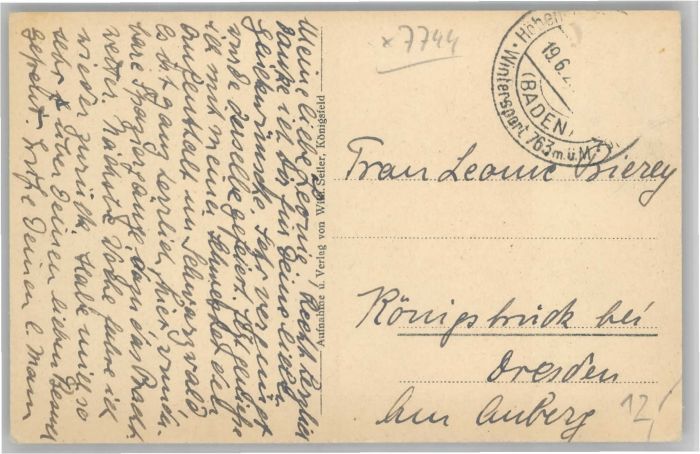 Meine liebe Leonie. Recht herzlich
danke ich dir für Deine lieben
sehr vergnügt
wurde derselbe gefeiert. Ich genieße
ich mit mein. Schwester den
Aufenthalt im Schwarzwald
Es ist ganz herrlich hier wunder-
bare Spaziergänge dazu das Pracht
wetter. Nächste Woche fahre ich
wieder zurück. Habe mich so
sehr über Deinen lieben Besuch
gefreut. Grüße Deinen l. Mann
Aufnahme u. Verlag von Wilh. Seiler, Königsfeld
x 7744
Höhen
Wintersport 763 m.ü.M.
19.6.2
(BADEN)
Frau Leonie Bierey
Königsbrück bei
Dresden
Am Anberg
12/